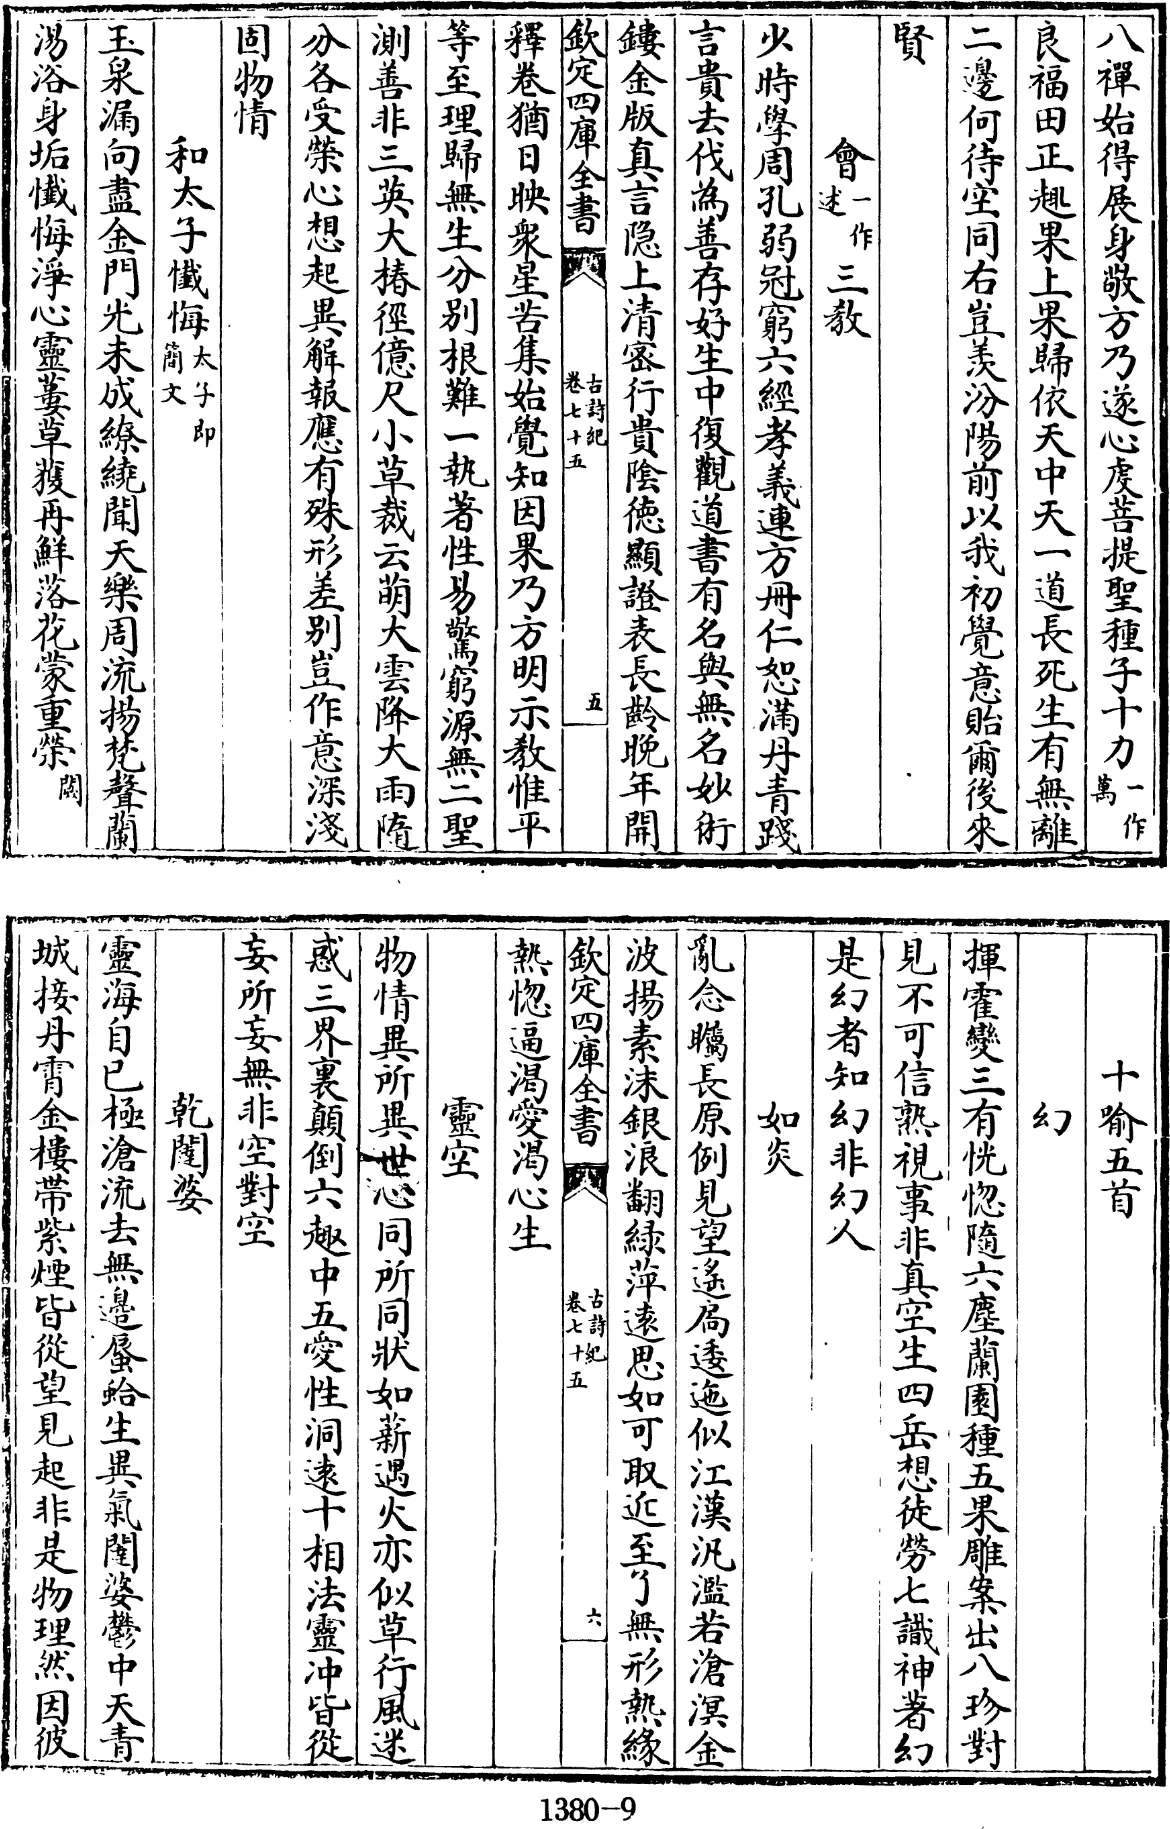 八禪始得展身敬方乃遂心虔菩提聖種子十力一作萬
良福田正趣果上果歸依天中天一道長死生有無離
二邊何待空同右豈羨汾陽前以我初覺意貽爾後來
賢
會一作述三教
少時學周孔弱冠窮六經孝義連方冊仁恕滿丹青踐
言貴去伐為善存好生中復觀道書有名與無名妙術
鏤金版真言隐上清密行貴陰徳顯證表長齡晚年開
欽定四庫全書 古詩紀卷七十五 五
釋卷猶日映衆星苦集始覺知因果乃方明示教惟平
等至理歸無生分别根難一執著性易驚窮源無二聖
測善非三英大椿徑億尺小草裁云萌大雲降大雨隨
分各受榮心想起異解報應有殊形差别豈作意深淺
固物情
和太子懺悔太子即簡文
玉泉漏向盡金門光未成繚繞聞天樂周流揚梵聲蘭
湯浴身垢懺悔淨心靈萎草獲再鮮落花蒙重榮闕
十喻五首
幻
揮霍變三有恍惚隨六塵蘭園種五果雕案出八珍對
見不可信熟視事非真空生四岳想徒勞七識神著幻
是幻者知幻非幻人
如炎
亂念矚長原例見望遙扃逶迤似江漢汎濫若滄溟金
波揚素沫銀浪翻綠萍遠思如可取近至了無形熱緣
欽定四庫全書 古詩紀卷七十五 六
熱惚逼渴愛渴心生
靈空
物情異所異世心同所同狀如薪遇火亦似草行風迷
惑三界裏顛倒六趣中五愛性洞遠十相法靈冲皆從
妄所妄無非空對空
乾闥婆
靈海自已極滄流去無邊蜃蛤生異氣闥婆鬱中天青
城接丹霄金樓帶紫煙皆從望見起非是物理然因彼
1380-9